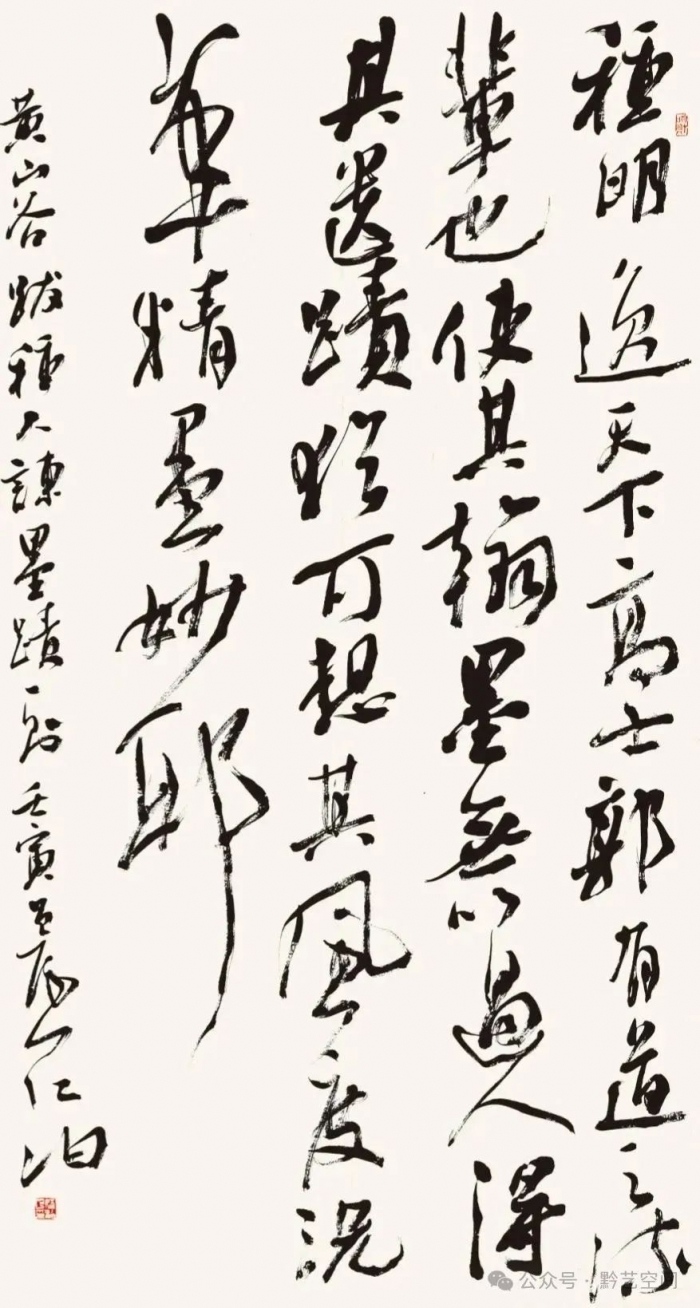 種明逸天下高士郭有道之流
輩也使其翰墨無以過人得
其遺蹟猶可想其風度況
筆精墨妙耶
黃山谷跋種大諫墨蹟一則壬寅仁泊
公众号·黔艺空间